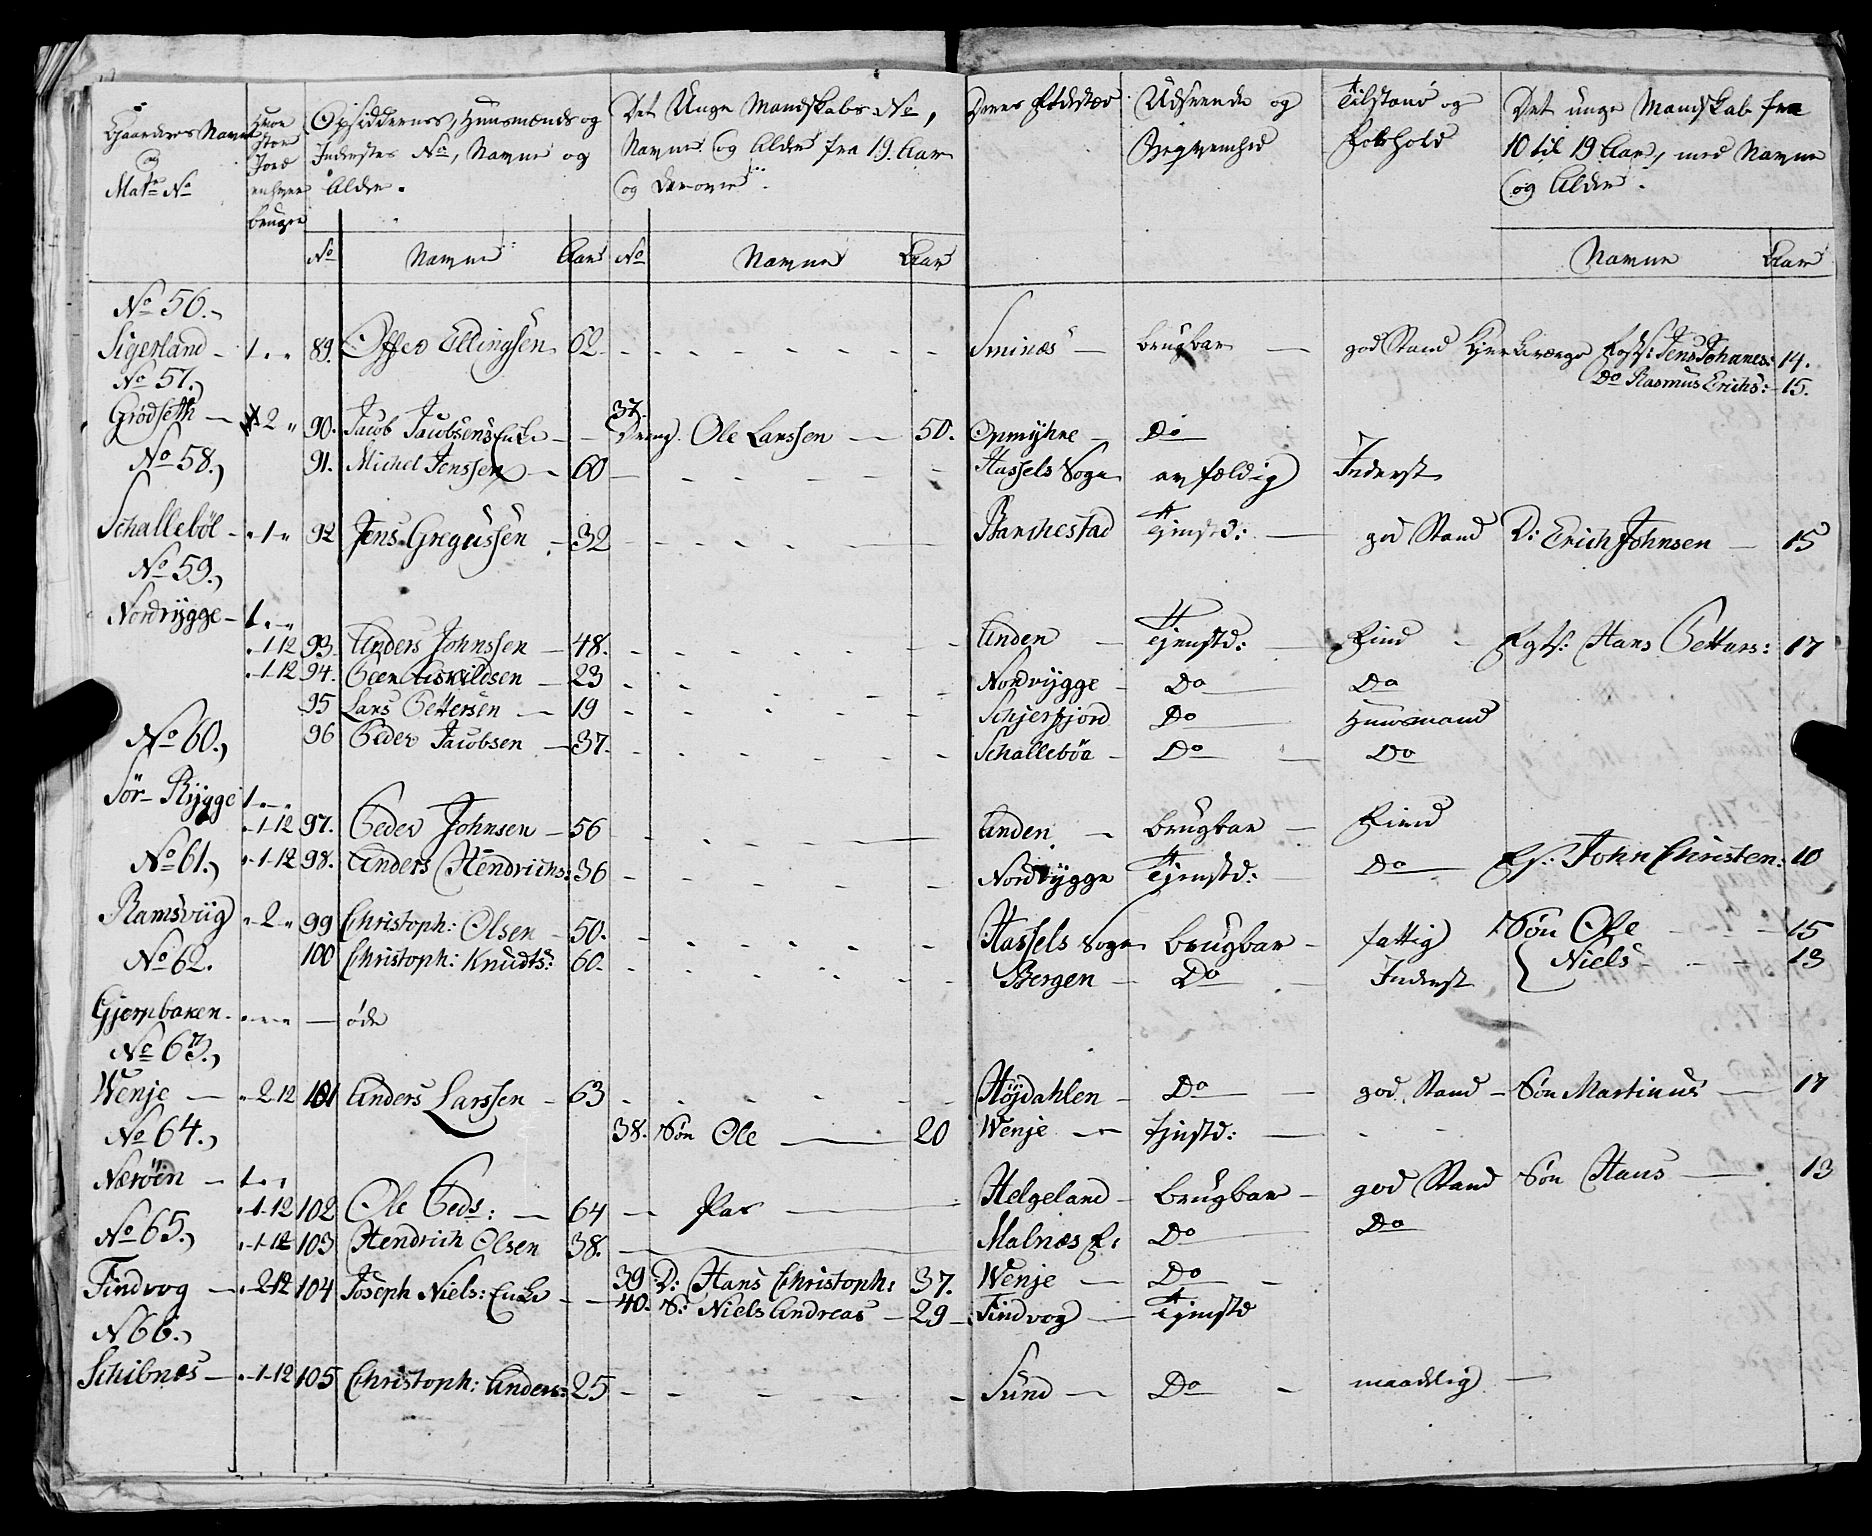 Gaardernes Navne og Mat: No
Hvor stor Jord enhver bruger
Opsiddernes, Huusmænds og Inderstes No, Navne og Alder.
Det Unge Mandskabs No, Navne og Alder fra 19. Aar og derover.
Deres Fødestæd
Udseende og Beqvemhed
Tilstand og Forhold
Det unge Mandskab fra 10 til 19 Aar, med Navne og Alder.
No Navne Aar No Navne Aar Navne Aar
No 56.
Sigerland - 1. " 89. Offer Ellingsen 62 Sminæs brugbar god Stand Jens Johannes: 14.
Do Rasmus Erichs: 15.
No 57.
Grödseth - 2 " 90. Jacob Jacobsens Enke - 37. Dreng. Ole Larssen 50. Opmyhre Do
91. Michel Jenssen 60 Hassels Sogn avfældig Inderst
No 58.
Schallebøl " 1 " 92 Jens Gregussen 32 Barchestad Tjenstd: god Stand D: Erich Johnsen 15
No 59.
Nordrygge - 1. "
" 1 12 93. Anders Johnssen 48. Anden Tjenstd: Rind Hans Petters: 17
" 1 12 94. Peer Asvildsen 23 Nordrygge Do Do
95 Lars Pettersen 19 Schjerfjord Do Huusmand
96 Peder Jacobsen 37. Schallebøa Do Do
No 60.
Sör-Rygge 1. "
" 1 12 97. Peder Johnsen 56 Anden brugbar Rind
" 1 12 98. Anders Hendrichs: 36 Nordrygge Tjenstd: Do John Christen: 10
No 61.
Ramsviig " 2 " 99 Christoph: Olsen 50. Hassels Sogn brugbar fattig Søn Ole 15
100 Christoph: Knudts: 60. Bergen Do Inderst Niels 13
No 62.
Gjernbaken øde
No 63.
Wenje " 2 12 101 Anders Larssen 63 Höjdahlen Do god Stand Søn Martinus 17
38. Søn Ole 20 Wenje Tjnstd:
No 64.
Næröen 1. "
" 1 12 102 Ole Peds: 64 Helgeland brugbar god Stand Søn Hans 13
" 1 12 103 Hendrich Olsen 38. Malnæs Do Do
No 65.
Findvog " 2 12 104 Joseph Niels: Enke 39 D: Hans Christoph: 37. Wenje Do
40. S: Niels Andreas 29 Findvog Tjenstd
N 66.
Schibnæs " 1 12 105 Christoph: Anders: 25 Sund Do maadelig